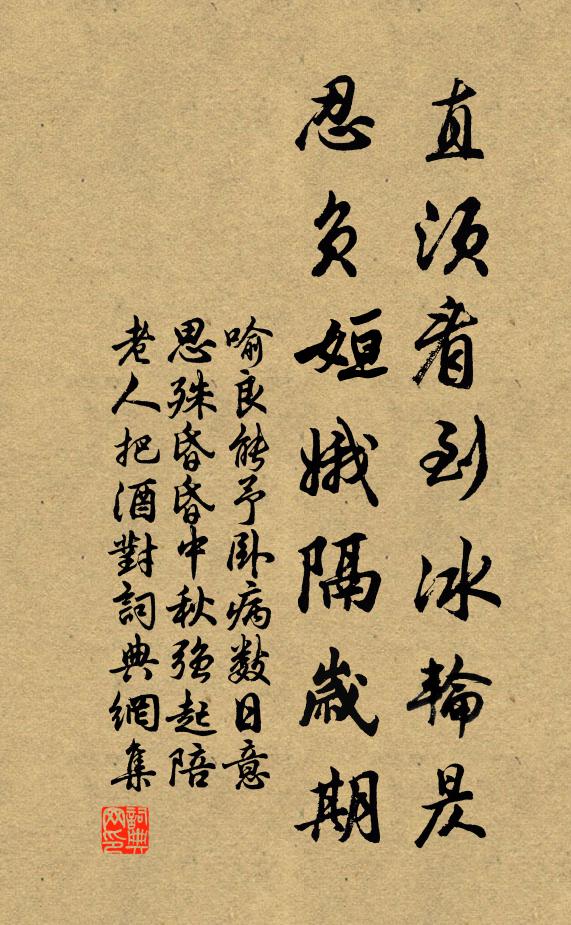 直須看到冰輪昃
忍負姮娥隔歲期
喻良能予臥病數日意
思殊昏昏中秋强起陪
老人把酒對詞典網集
詞典网印